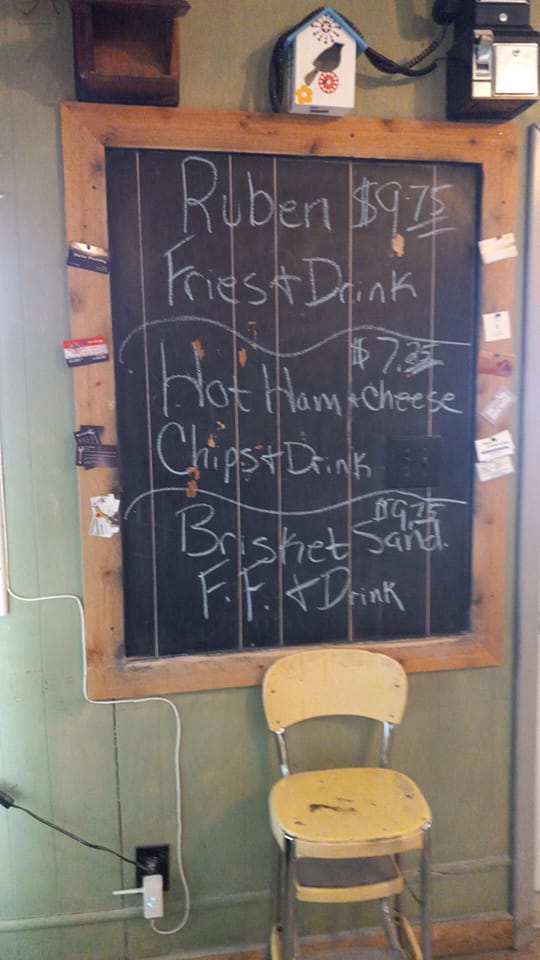 Ruben $9.75
Fries & Drink
$7.25
Hot Ham & Cheese
Chips & Drink
$9.75
Brisket Sand.
F.F. & Drink